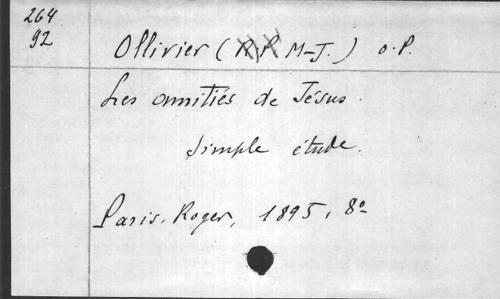 264
92
Ollivier (R.P. M-J.) O.P.
Les amitiés de Jésus.
Simple étude.
Paris, Roger, 1895, 8°